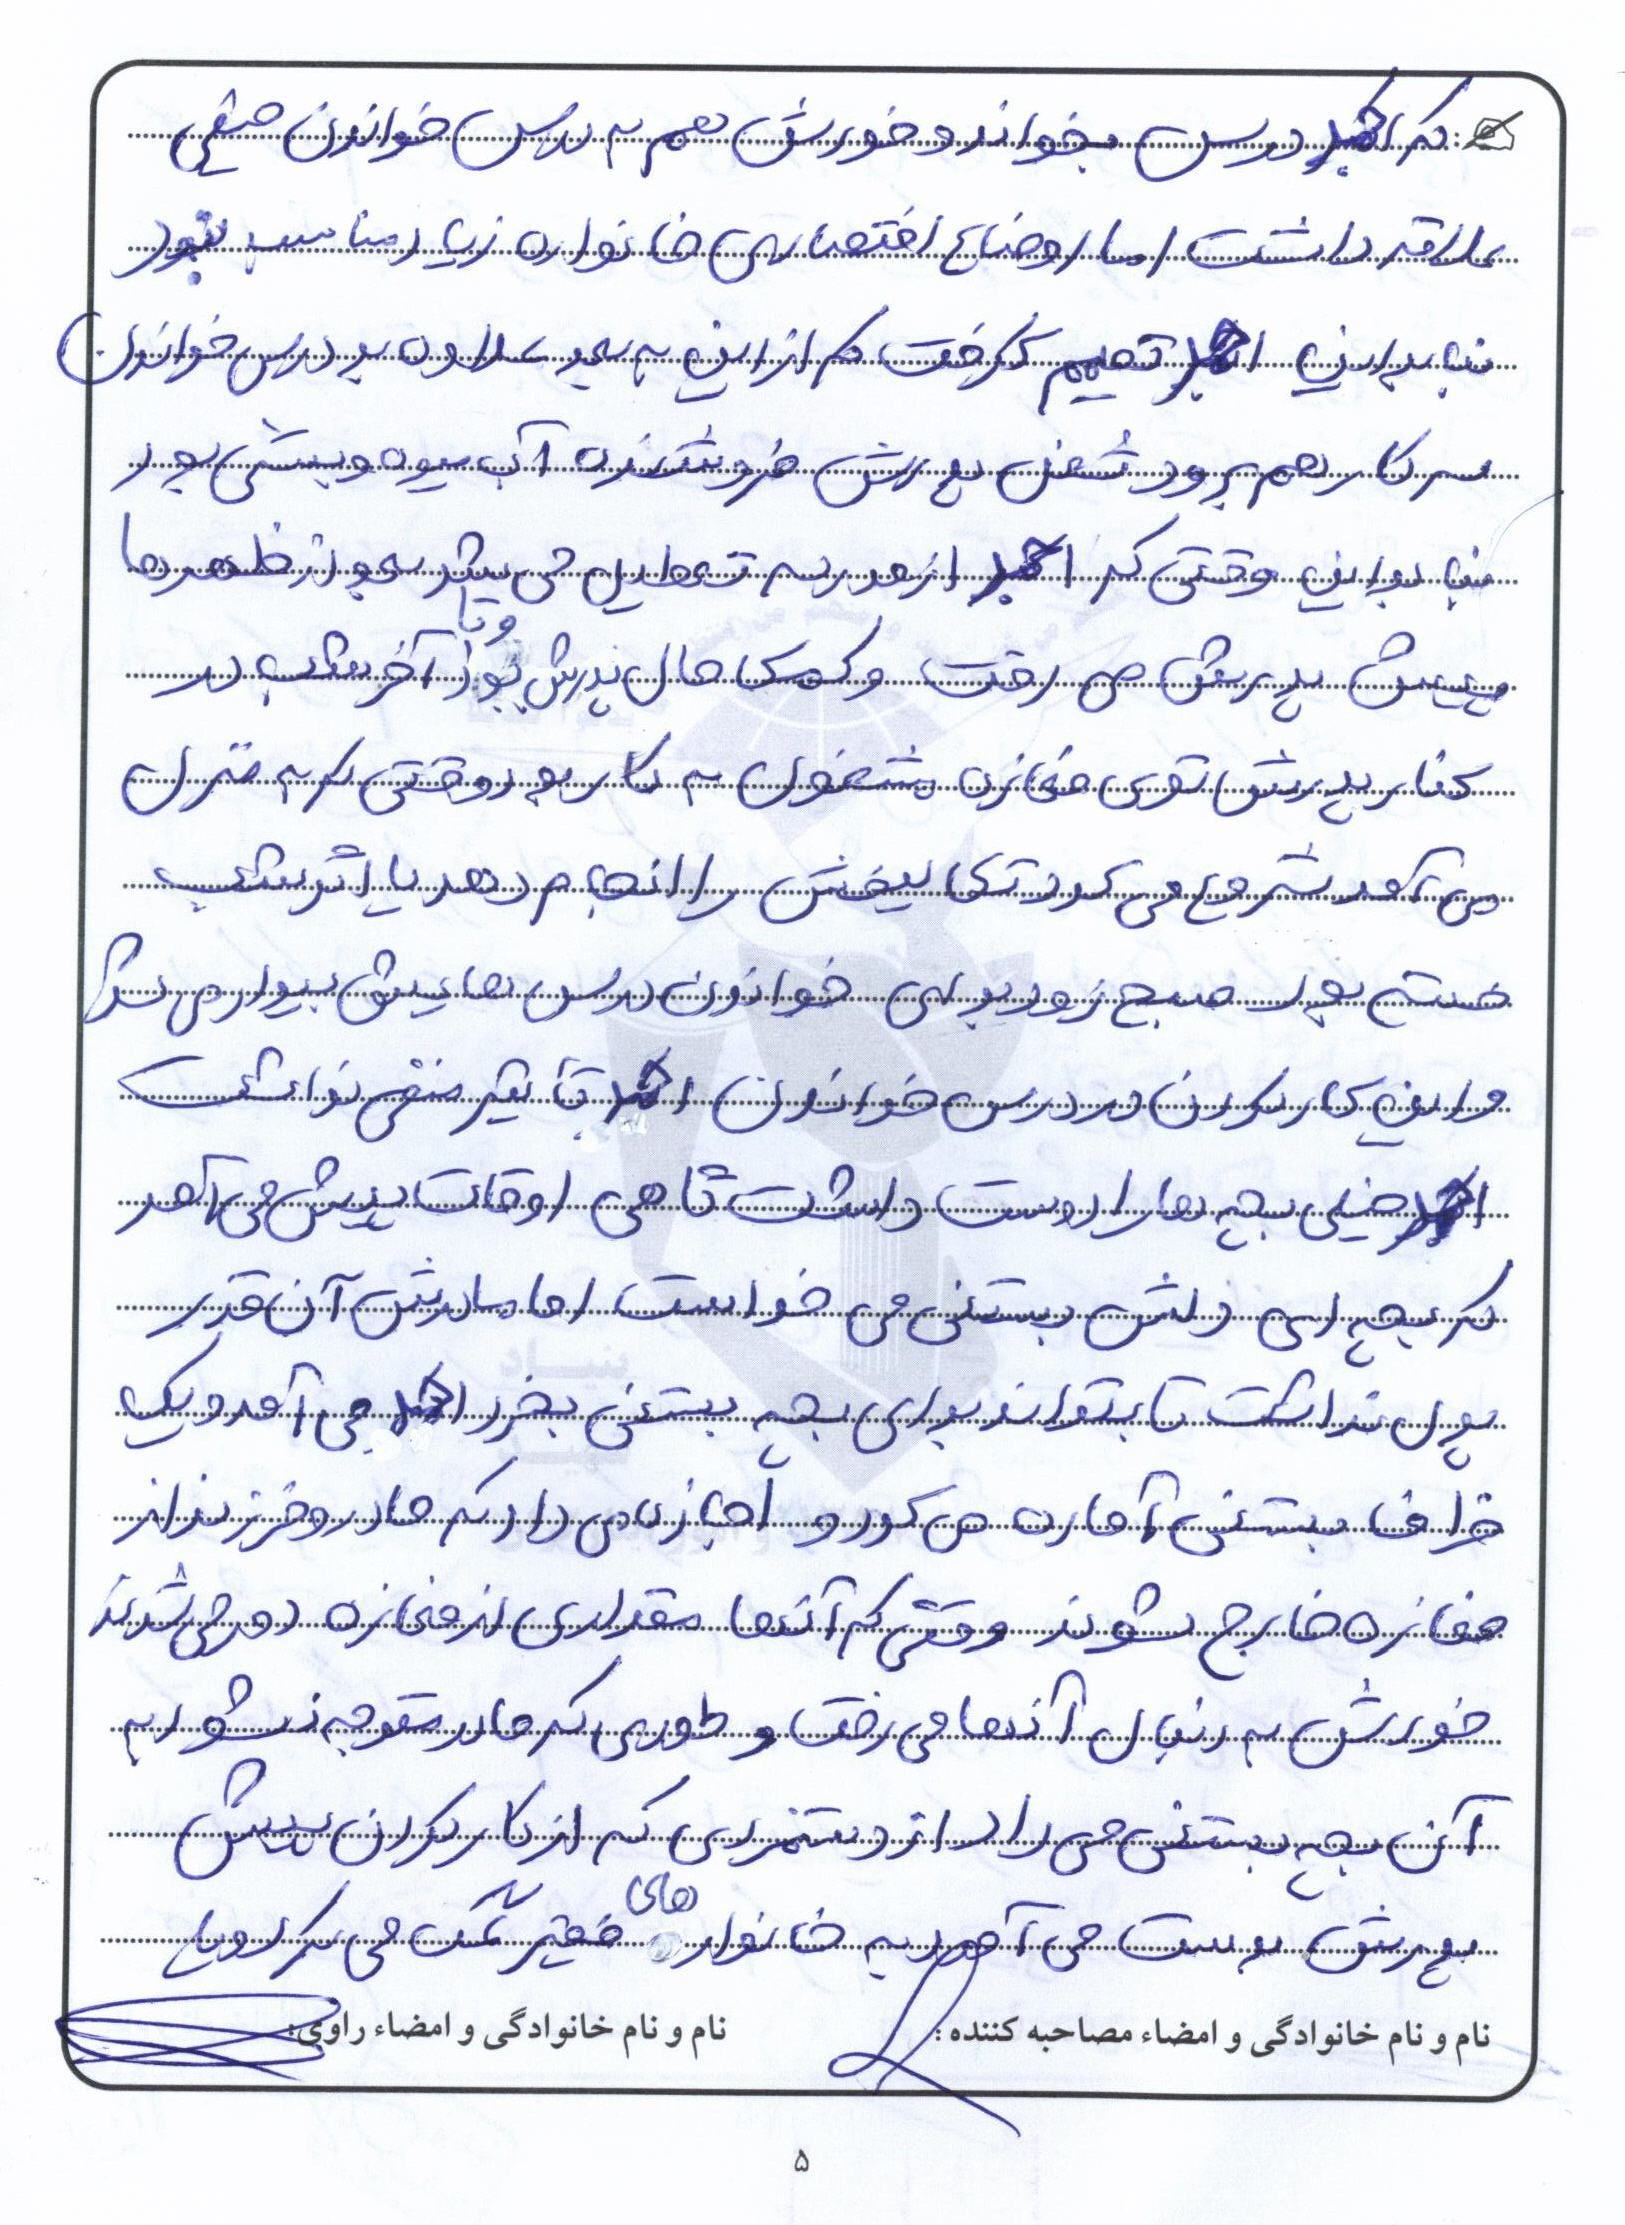 که اکبر درس بخواند و خودش هم به درس خواندن خیلی
علاقه داشت اما اوضاع اقتصادی خانواده زیاد مناسب نبود
بنابراین اکبر تصمیم گرفت که از این به بعد علاوه بر درس خواندن
سر کار هم برود شغل پدرش فروشنده آب میوه و بستنی بود
بنابراین وقتی که اکبر از مدرسه تعطیل می شد بعد از ظهرها
پیش پدرش می رفت و کمک حال پدرش بود و تا آخر شب در
کنار پدرش توی مغازه مشغول به کار بود وقتی که به منزل
می آمد شروع می کرد تکالیفش را انجام دهد یا اگر شب
خسته بود صبح زود برای خواندن درس هایش بیدار می شد
و این کار کردن در درس خواندن اکبر تأثیر منفی نداشت
اکبر خیلی بچه ها را دوست داشت گاهی اوقات پیش می آمد
که بچه ای دلش بستنی می خواست اما مادرش آن قدر
پول نداشت تا بتواند برای بچه بستنی بخرد اکبر می آمد و یک
ظرف بستنی آماده می کرد و اجازه می داد که مادر و فرزند از
مغازه خارج شوند وقتی که آنها مقداری از مغازه دور می شدند
خودش به دنبال آنها می رفت و طوری که مادر متوجه نشود به
آن بچه بستنی می داد از دستمزدی که از کار کردن پیش
پدرش بدست می آورد به خانواده های فقیر کمک می کرد و با
نام و نام خانوادگی و امضاء مصاحبه کننده :
نام و نام خانوادگی و امضاء راوی:
۵